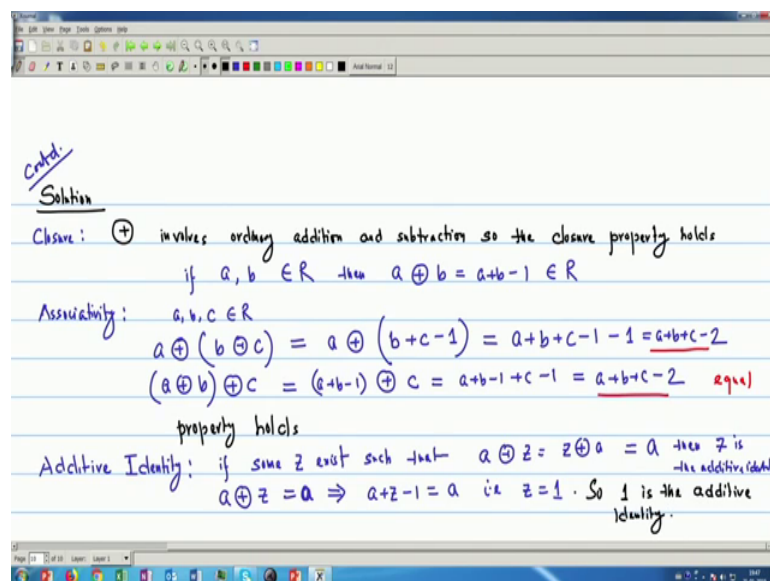 File Edit View Page Tools Options Help
Arial Normal 12
Contd.
Solution
Closure: ⊕ involves ordinary addition and subtraction so the closure property holds
if a, b ∈ R then a ⊕ b = a+b-1 ∈ R
Associativity: a, b, c ∈ R
a ⊕ (b ⊕ c) = a ⊕ (b+c-1) = a+b+c-1-1 = a+b+c-2
(a ⊕ b) ⊕ c = (a+b-1) ⊕ c = a+b-1+c-1 = a+b+c-2 equal
property holds
Additive Identity: if some z exist such that a ⊕ z = z ⊕ a = a then z is
the additive identi
a ⊕ z = a ⇒ a+z-1 = a i.e z=1. So 1 is the additive
Identity.
Page 10 of 10 Layer: Layer 1